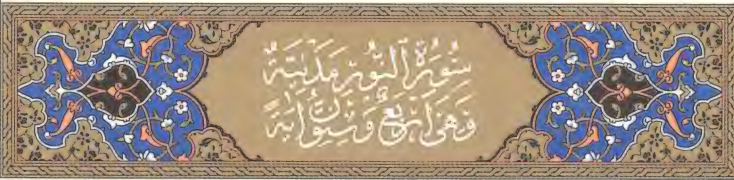 سُورَةُ النُّورِ مَدَنِيَّةٌ
وَهِيَ أَرْبَعٌ وَسِتُّونَ آيَةً